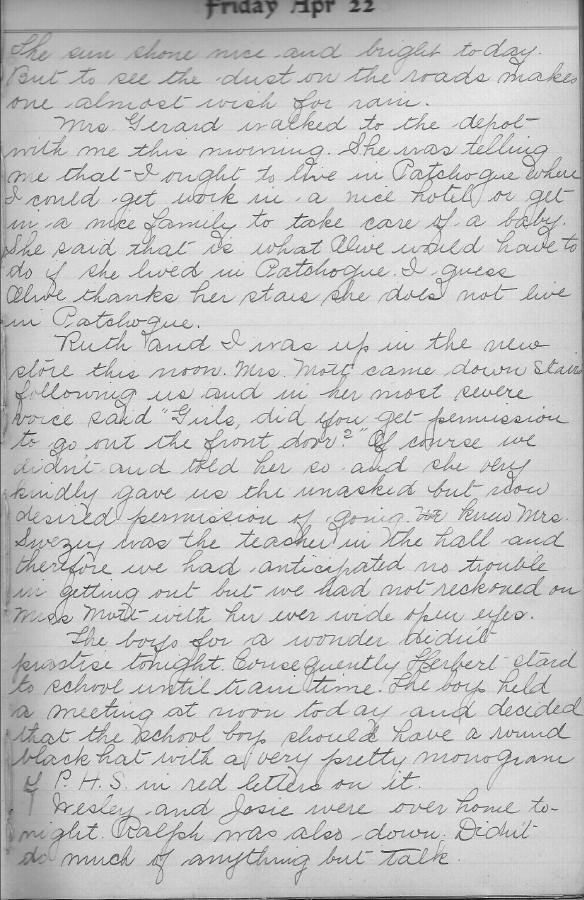 Friday Apr 22
The sun shone nice and bright today.
But to see the dust on the roads makes
one almost wish for rain.
Mrs. Gerard walked to the depot
with me this morning. She was telling
me that I ought to live in Patchogue where
I could get work in a nice hotel or get
in a nice family to take care of a baby.
She said that is what Olive would have to
do if she lived in Patchogue. I guess
Olive thanks her stars she does not live
in Patchogue.
Ruth and I was up in the new
store this noon. Mrs. Mott came down stairs
following us and in her most severe
voice said "Girls, did you get permission
to go out the front door?" Of course we
didn't and told her so and she very
kindly gave us the unasked but now
desired permission of going. We knew Mrs.
Swezey was the teacher in the hall and
therefore we had anticipated no trouble
in getting out but we had not reckoned on
Miss Mott with her ever wide open eyes.
The boys for a wonder didn't
practise tonight. Consequently Herbert staid
to school until train time. The boys held
a meeting at noon today and decided
that the school boys should have a round
black hat with a very pretty monogram
of P.H.S. in red letters on it.
Wesley and Josie were over home to-
night. Ralph was also down. Didn't
do much of anything but talk.